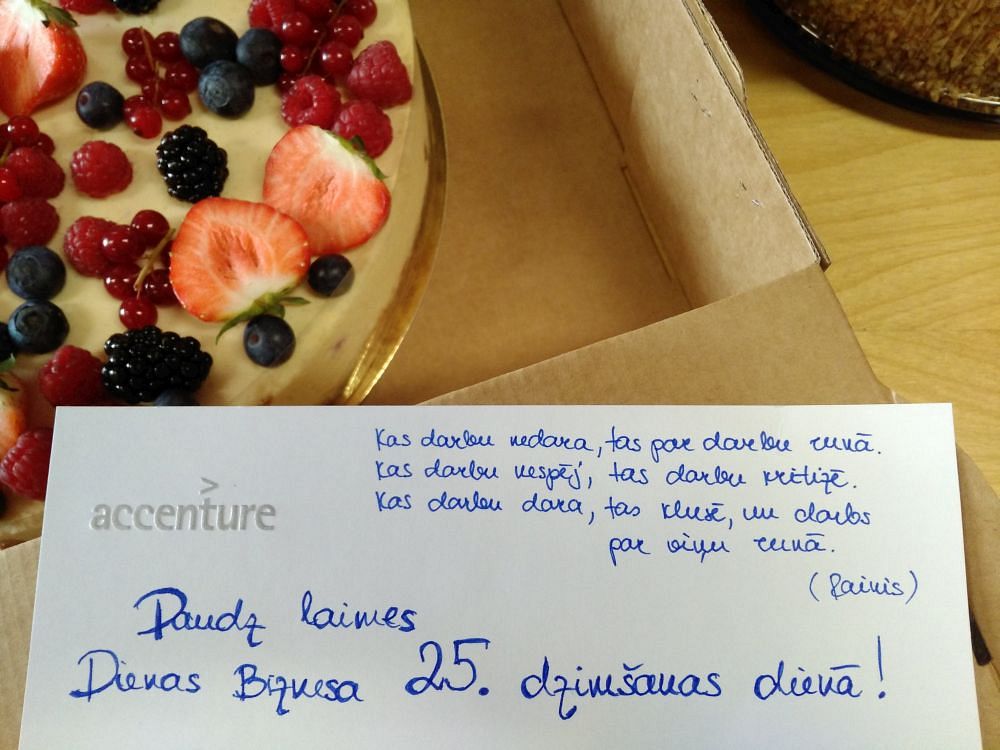 Kas darbu nedara, tas par darbu runā.
Kas darbu nespēj, tas darbu kritizē.
Kas darbu dara, tas klusē, un darbs
par viņu runā.
(Rainis)
accenture
Daudz laimes
Dienas Biznesa 25. dzimšanas dienā!